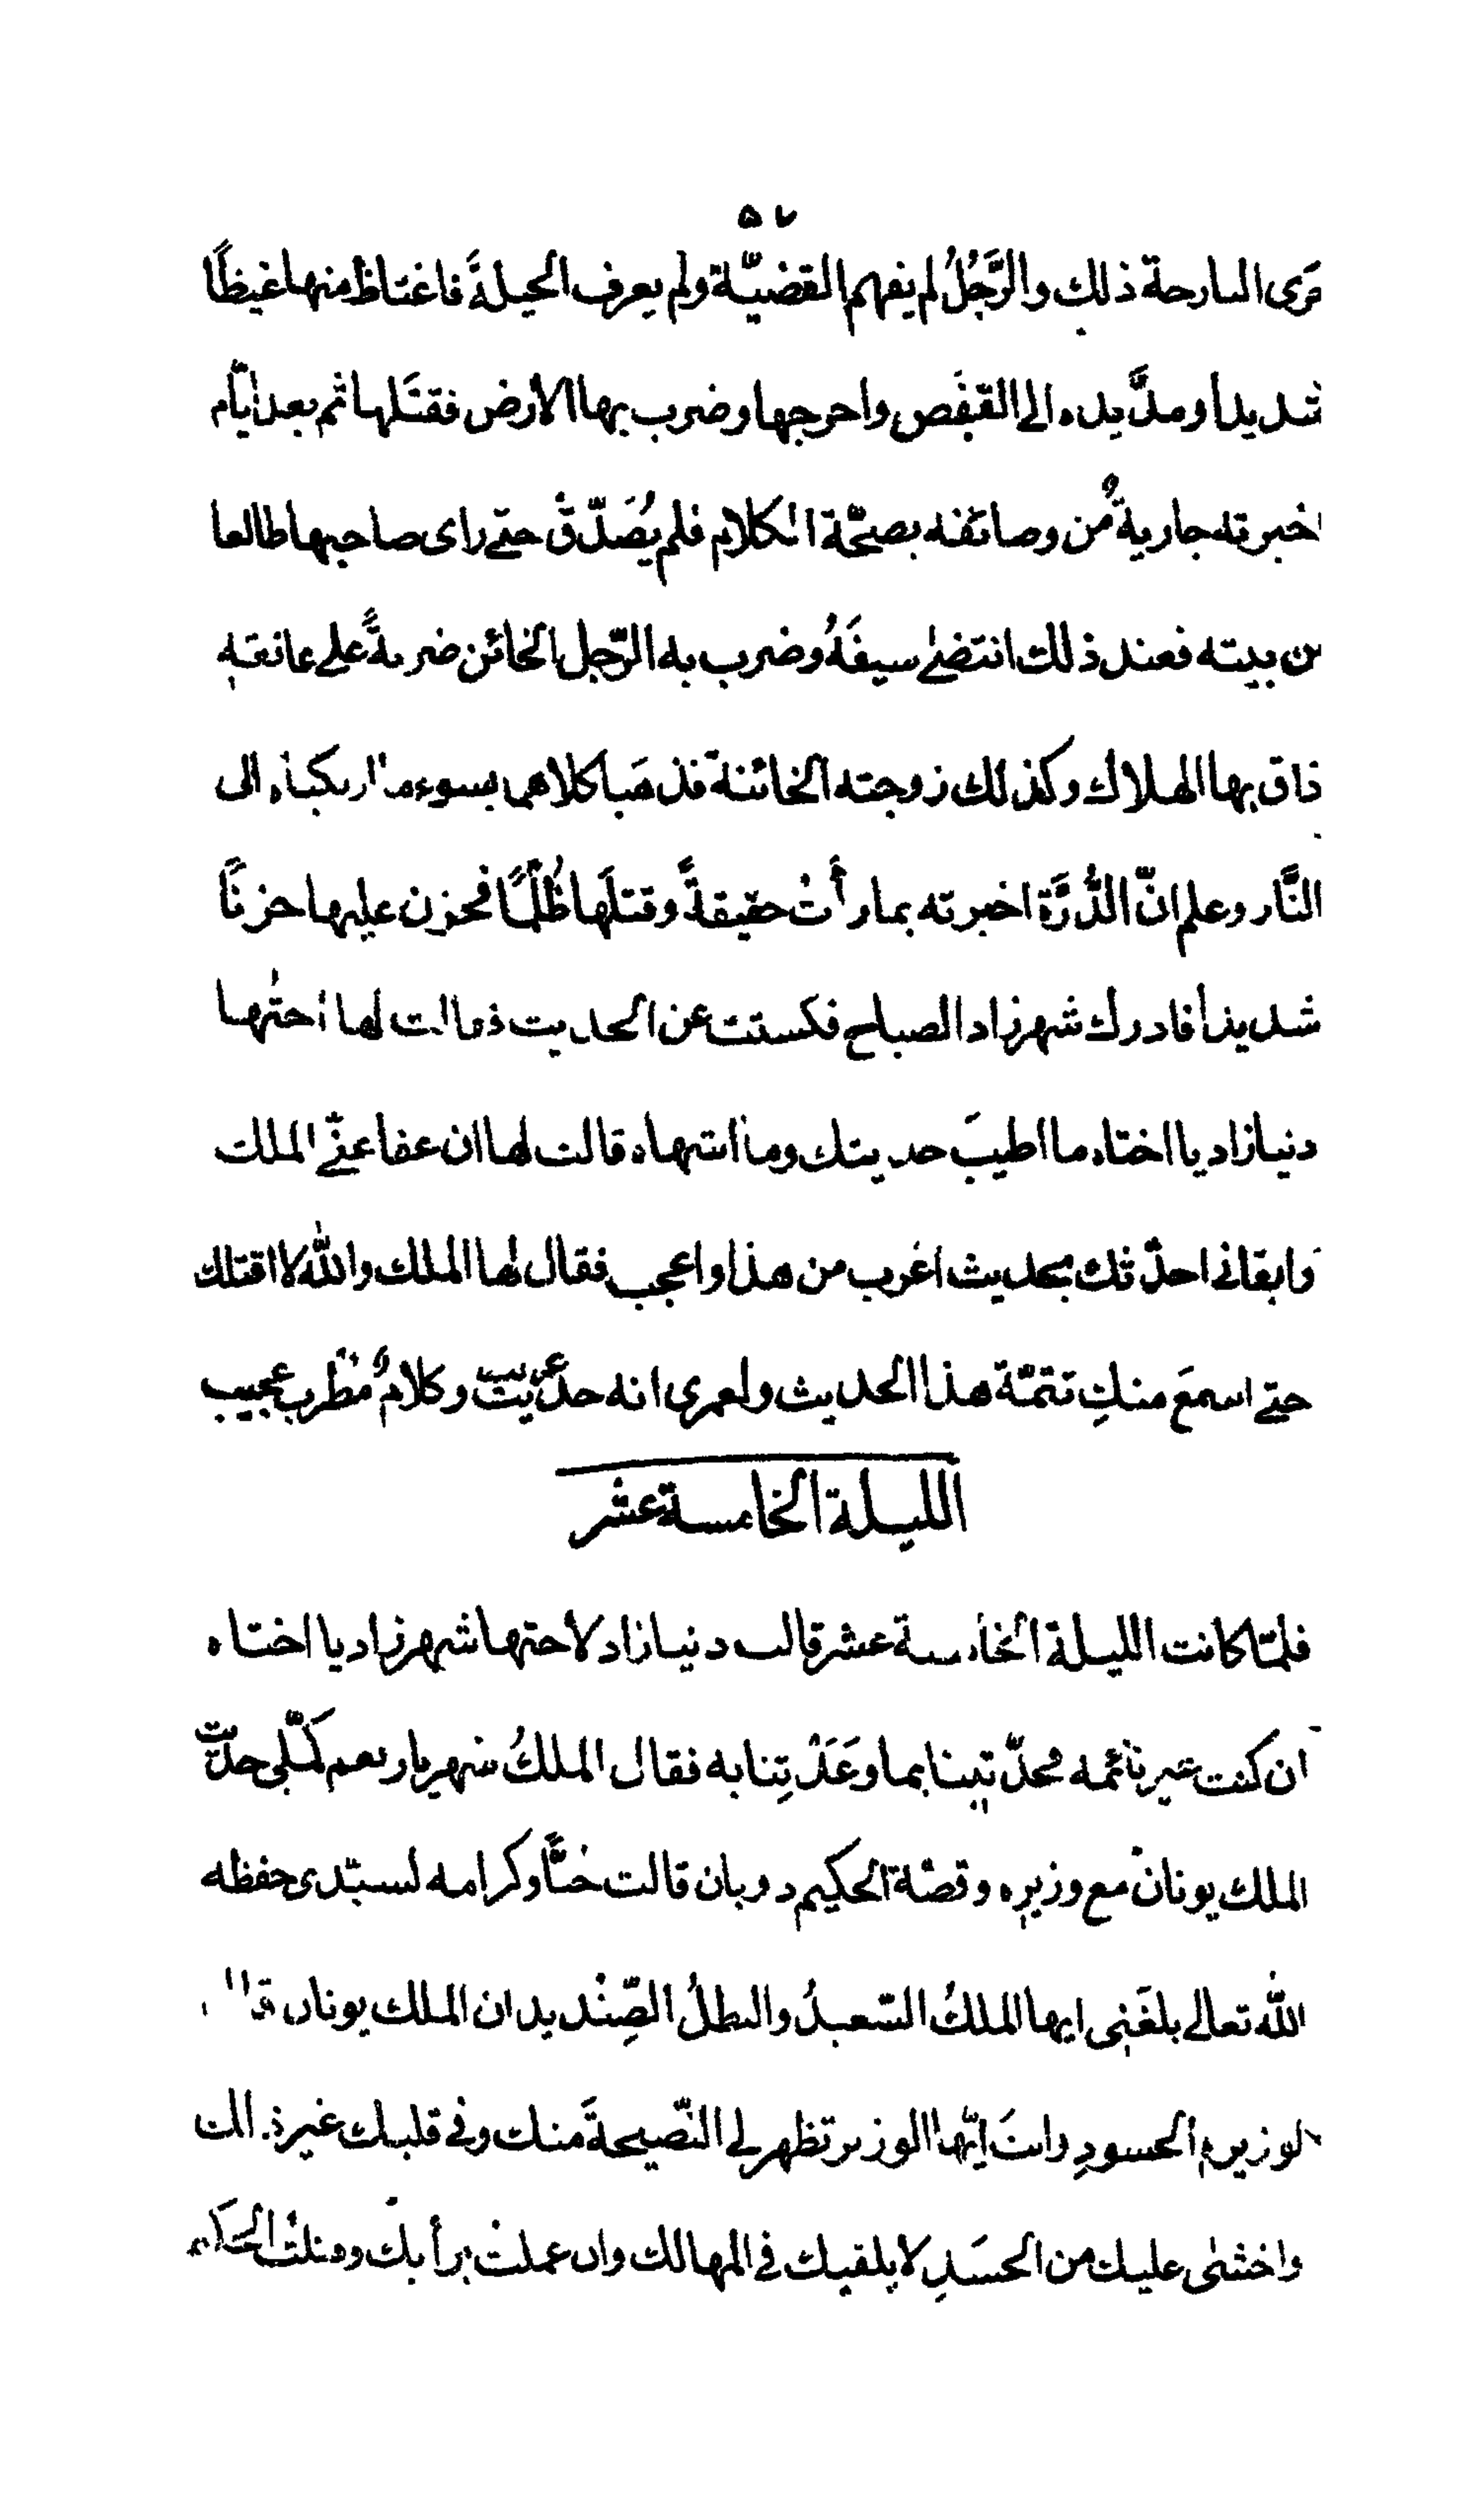 ترى البارحة ذلك والرَّجُلُ لم يفهم القضيّة ولم يعرف الحيلةَ فاغتاظ منها غيظًا
شديداً ومدَّ يده الى القفص واخرجها وضرب بها الارض فقتَلها ثم بعد ايّام
اخبرته جاريةٌ من وصائفه بصحّة الكلام فلم يُصَدّق حتى راى صاحبها طالعا
من بيته فعند ذلك انتضى سيفَهُ وضرب به الرّجل الخائن ضربةً على عاتقه
ذاق بها الهلاك وكذلك زوجته الخائنة فذهَبا كلاهما بسوء ما ارتكباه الى
النَّار وعلم انّ الدُّرَّة اخبرته بما رأت حقيقةً وقتلَها ظُلْمًا فحزن عليها حزنًا
شديداً فادرك شهرزاد الصباح فسكتت عن الحديث فقالت لها اختها
دنيازاد يا اختاه ما اطيبَ حديثك وما اشهاه قالت لها ان عفا عنّى الملك
وابقانى احدّثك بحديث اغرب من هذا واعجب فقال لها الملك والله لا اقتلك
حتى اسمعَ منكِ تتمّة هذا الحديث ولعمرى انه حديث وكلامٌ مطرب عجيب
الليلة الخامسة عشر
فلمّا كانت الليلة الخامسة عشر قالت دنيازاد لاختها شهرزاد يا اختاه
ان كنت غير نائمه فحدّثينا بما وعَدْتِنا به فقال الملكُ شهريار نعم كمّلى حديث
الملك يونان مع وزيره وقصّة الحكيم دوبان قالت حبًّا وكرامه لسيّدى حفظه
الله تعالى بلغَنِى ايها الملكُ السّعيدُ والبطلُ الصِّنْديد ان الملك يونان قال
لوزيره الحسودِ وانتَ ايّها الوزير تظهر لى النّصيحةَ منك وفى قلبك غير ذالك
واخشى عليك من الحسَدِ لا يلقيك فى المهالك وان عملت برأيك وقتلتُ الحكيم